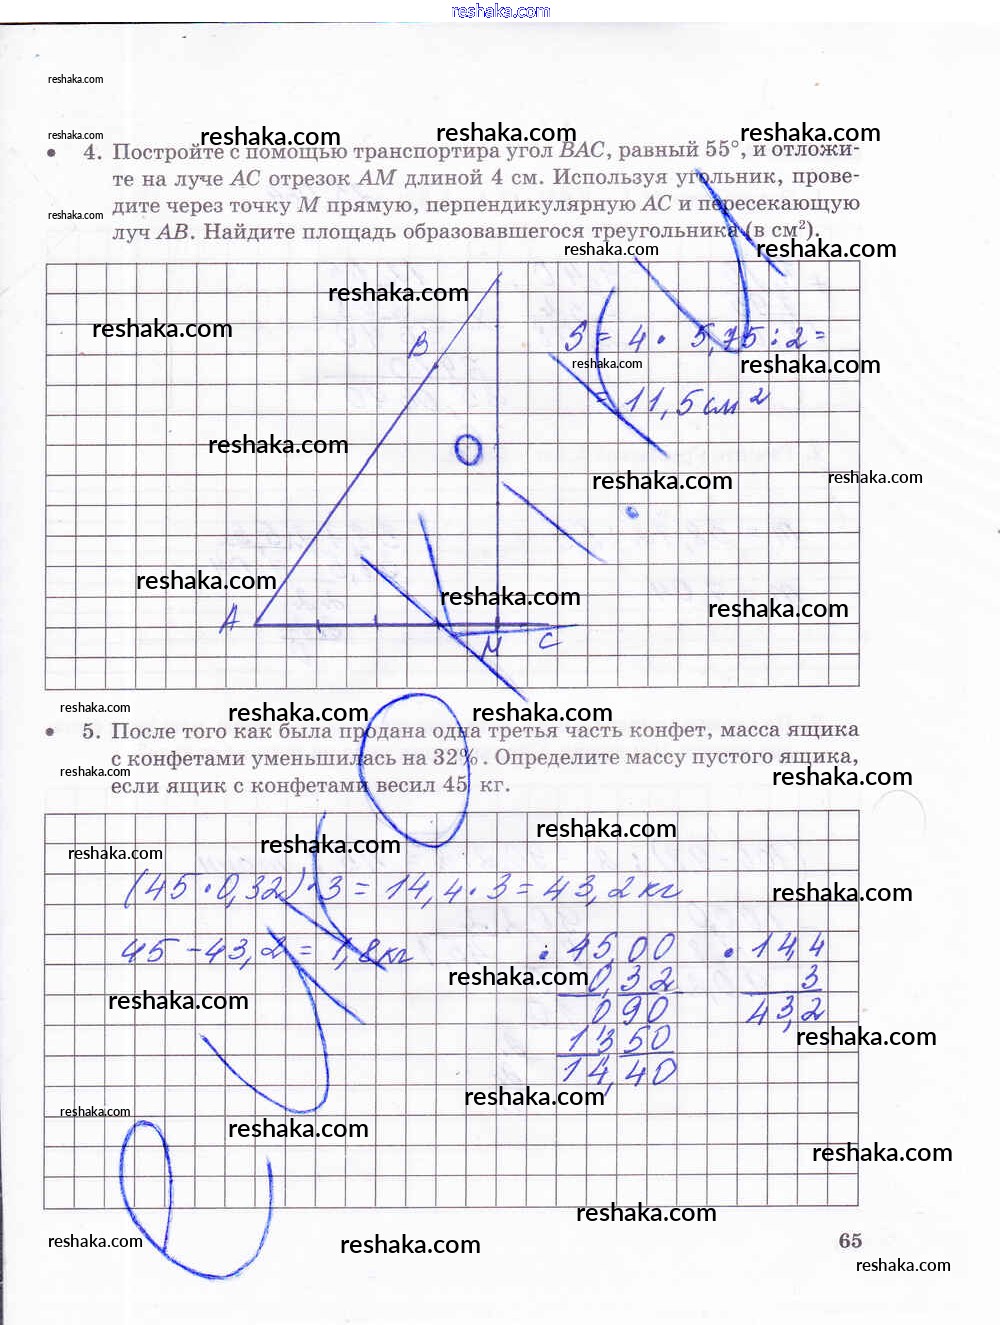 reshaka.com
reshaka.com
reshaka.com reshaka.com reshaka.com reshaka.com
• 4. Постройте с помощью транспортира угол BAC, равный 55°, и отложи-
те на луче AC отрезок AM длиной 4 см. Используя угольник, прове-
reshaka.com
дите через точку M прямую, перпендикулярную AC и пересекающую
луч AB. Найдите площадь образовавшегося треугольника (в см²).
reshaka.com reshaka.com
reshaka.com
reshaka.com
S = 4 · 5,75 : 2 =
B
reshaka.com reshaka.com
= 11,5 см²
reshaka.com
reshaka.com reshaka.com
reshaka.com
reshaka.com reshaka.com
A M C
reshaka.com reshaka.com reshaka.com
• 5. После того как была продана одна третья часть конфет, масса ящика
с конфетами уменьшилась на 32%. Определите массу пустого ящика,
reshaka.com reshaka.com
если ящик с конфетами весил 45 кг.
reshaka.com
reshaka.com reshaka.com
(45 · 0,32) · 3 = 14,4 · 3 = 43,2 кг
reshaka.com
45 - 43,2 = 1,8 кг
· 45,00 · 14,4
reshaka.com
0,32 3
reshaka.com
090 43,2
1350
reshaka.com
14,40
reshaka.com
reshaka.com
reshaka.com
reshaka.com
reshaka.com
65
reshaka.com reshaka.com
reshaka.com